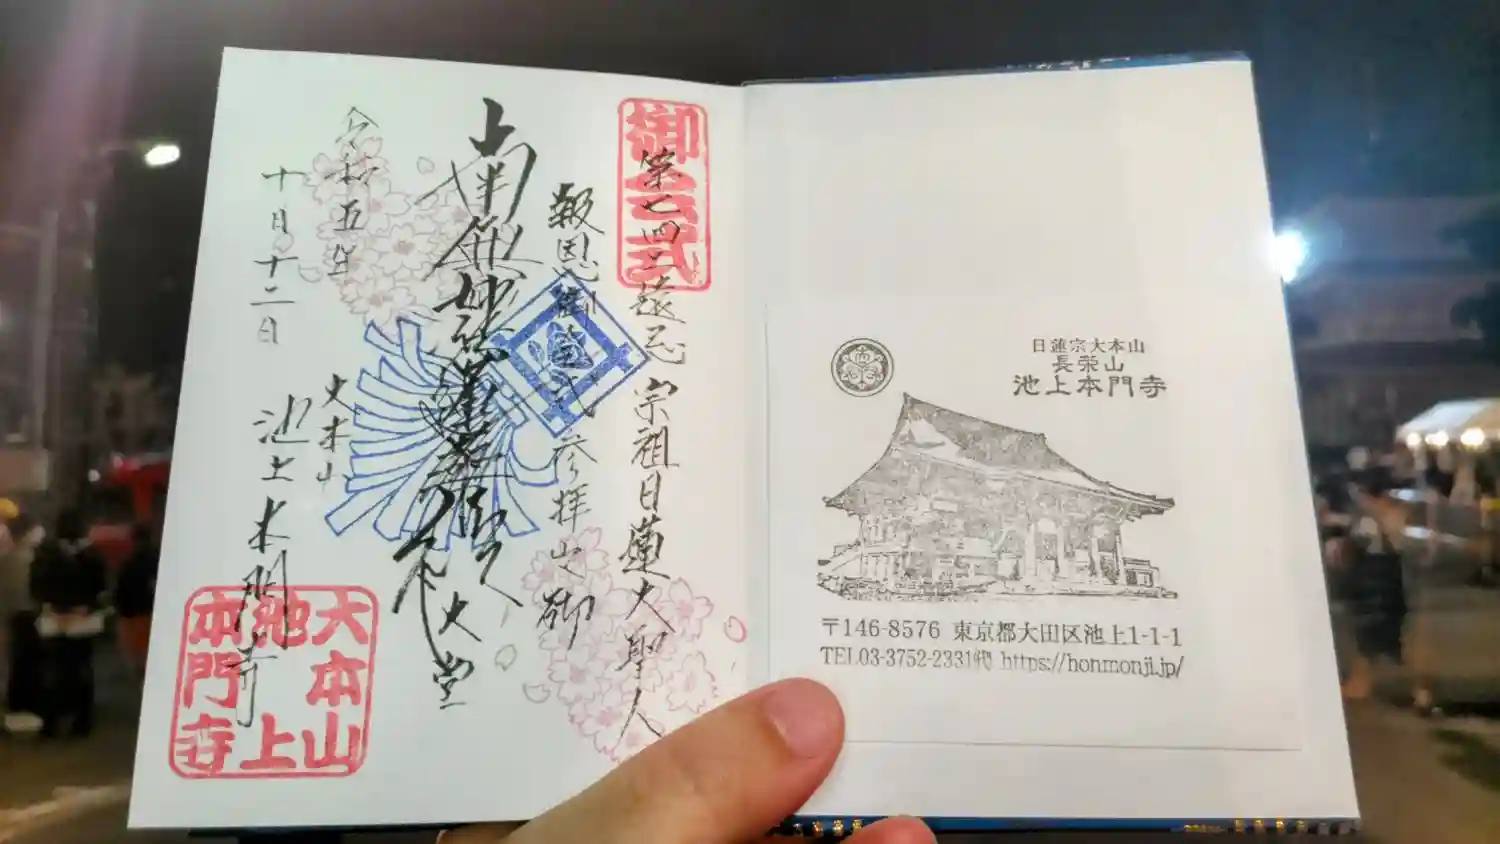 御会式
第七四二遠忌 宗祖日蓮大聖人
報恩御会式 参拝之
南無妙法蓮華経
大堂
令和五年
十月十二日
大本山
池上本門寺
大本山
池上
本門寺
日蓮宗大本山
長栄山
池上本門寺
〒146-8576 東京都大田区池上1-1-1
TEL03-3752-2331代 https://honmonji.jp/